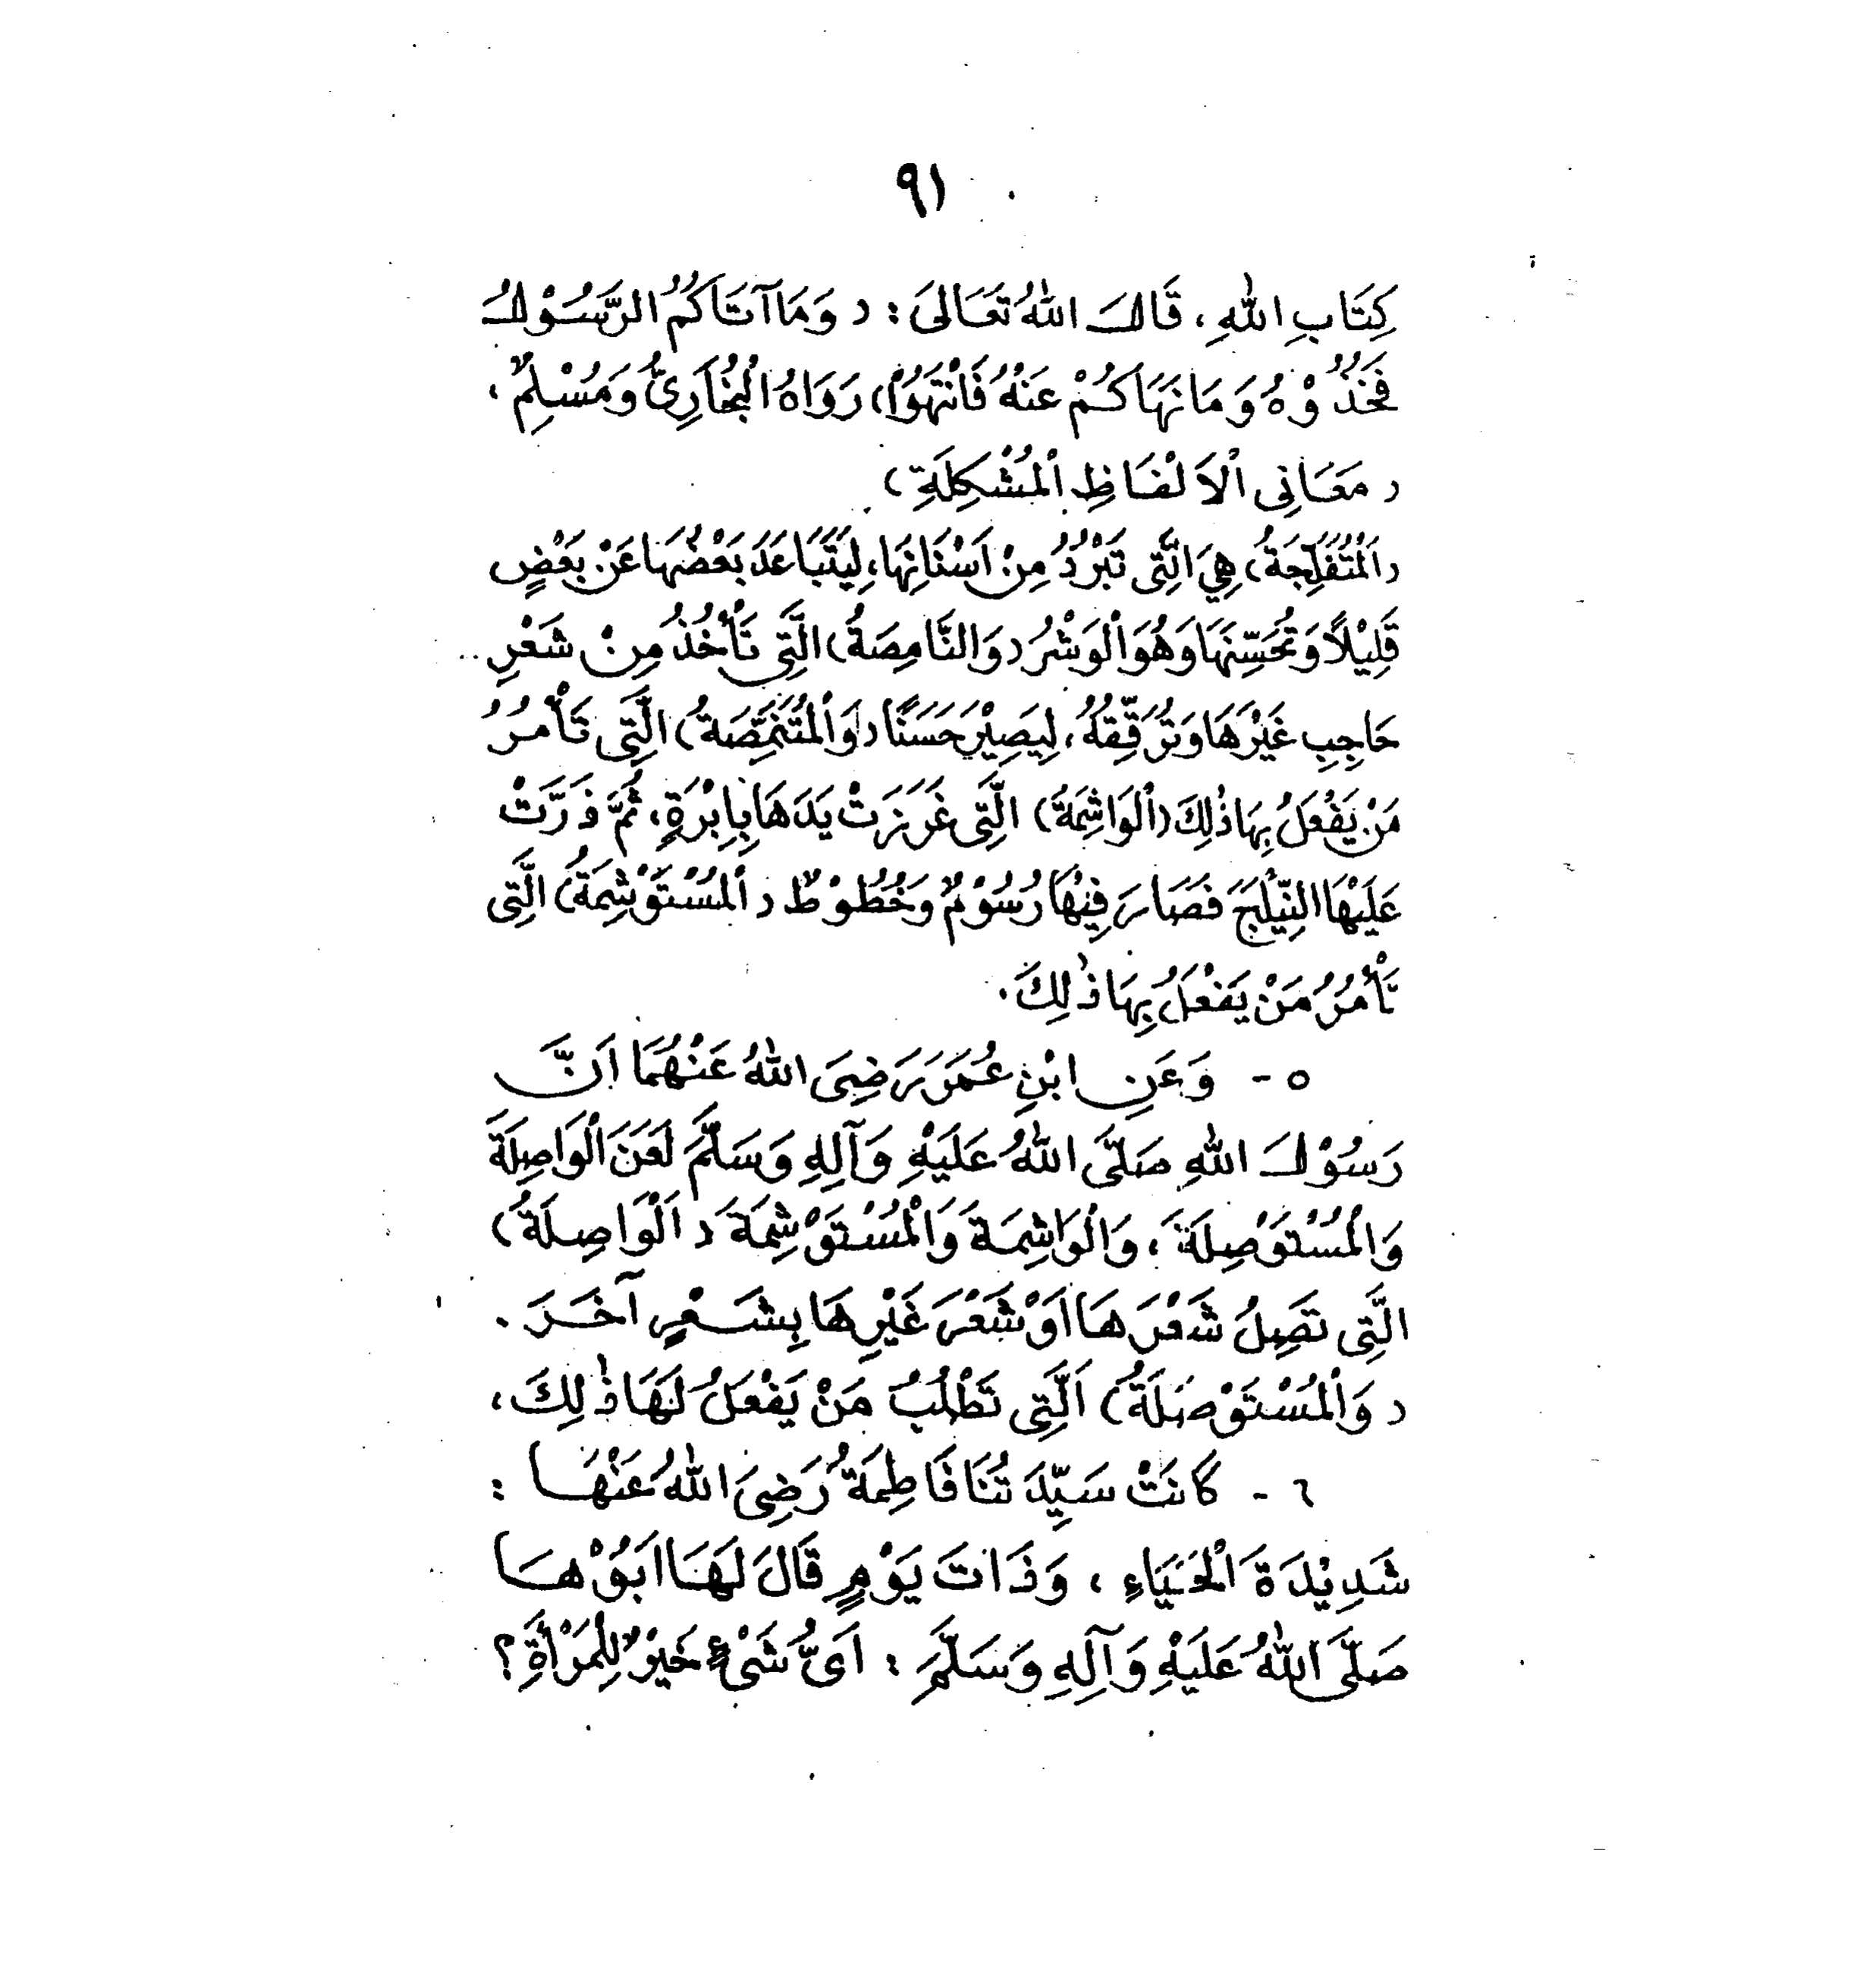 ٩١
كِتَابِ اللهِ، قَالَ اللهُ تَعَالىَ: (وَمَا آتَاكُمُ الرَّسُوْلُ
فَخُذُوْهُ وَمَا نَهَاكُمْ عَنْهُ فَانْتَهُوْا) رَوَاهُ الْبُخَارِىُّ وَمُسْلِمٌ،
(مَعَانِى اْلاَلْفَاظِ اْلمُشْكِلَةِ)
(اَلْمُتَفَلِّجَةُ) هِيَ الَّتِى تَبْرُدُ مِنْ اَسْنَانِهَا، لِيَتَبَاعَدَ بَعْضُهَا عَنْ بَعْضٍ
قَلِيْلاً وَتُحَسِّنَهَا وَهُوَ اْلوَشْرُ (وَالنَّامِصَةُ) الَّتِى تَأْخُذُ مِنْ شَعْرِ
حَاجِبِ غَيْرِهَا وَتُرَقِّقُهُ، لِيَصِيْرَ حَسَنًا (وَاْلمُتَنَمِّصَةُ) الَّتِى تَأْمُرُ
مَنْ يَفْعَلُ بِهَا ذٰلِكَ (اْلوَاشِمَةُ) الَّتِى غَرَزَتْ يَدَهَا بِاِبْرَةٍ، ثُمَّ ذَرَّتْ
عَلَيْهَا النِّيْلَجَ فَصَارَ فِيْهَا رُسُوْمٌ وَخُطُوْطٌ (اْلمُسْتَوْشِمَةُ) الَّتِى
تَأْمُرُ مَنْ يَفْعَلُ بِهَا ذٰلِكَ.
٥ - وَعَنِ ابْنِ عُمَرَ رَضِىَ اللهُ عَنْهُمَا اَنَّ
رَسُوْلَ اللهِ صَلَّى اللهُ عَلَيْهِ وَآلِهِ وَسَلَّمَ لَعَنَ اْلوَاصِلَةَ
وَاْلمُسْتَوْصِلَةَ، وَاْلوَاشِمَةَ وَاْلمُسْتَوْشِمَةَ (اَلْوَاصِلَةُ)
الَّتِى تَصِلُ شَعْرَهَا اَوْ شَعْرَ غَيْرِهَا بِشَعْرٍ آخَرَ.
(وَاْلمُسْتَوْصِلَةُ) اَلَّتِى تَطْلُبُ مَنْ يَفْعَلُ لَهَا ذٰلِكَ،
٦ - كَانَتْ سَيِّدَتُنَا فَاطِمَةُ رَضِىَ اللهُ عَنْهَا :
شَدِيْدَةَ اْلحَيَاءِ، وَذَاتَ يَوْمٍ قَالَ لَهَا اَبُوْهَا
صَلَّى اللهُ عَلَيْهِ وَآلِهِ وَسَلَّمَ : اَىُّ شَىْءٍ خَيْرٌ لِلْمَرْأَةِ؟